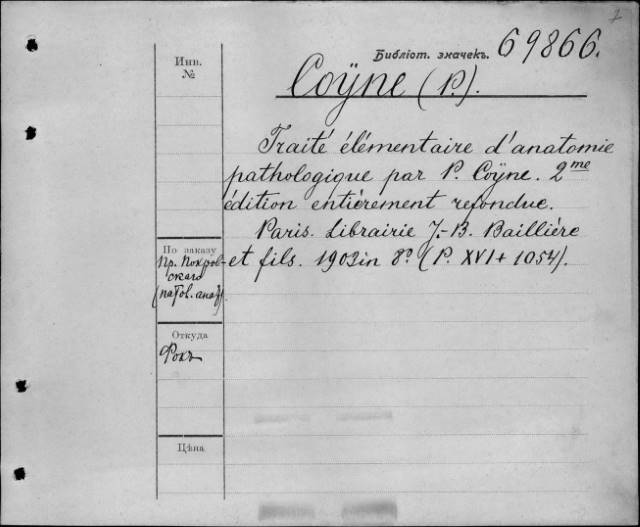 Инв. №
Библіот. значекъ. 69866.
Coÿne (P.).
Traité élémentaire d'anatomie
pathologique par P. Coÿne. 2me
édition entiérement refondue.
Paris. Librairie J-B. Bailliére
et fils. 1903 in 8º (P. XVI + 1054).
По заказу
Пр. Покров-
скаго
(патол. анат.)
Откуда
Фохъ
Цѣна